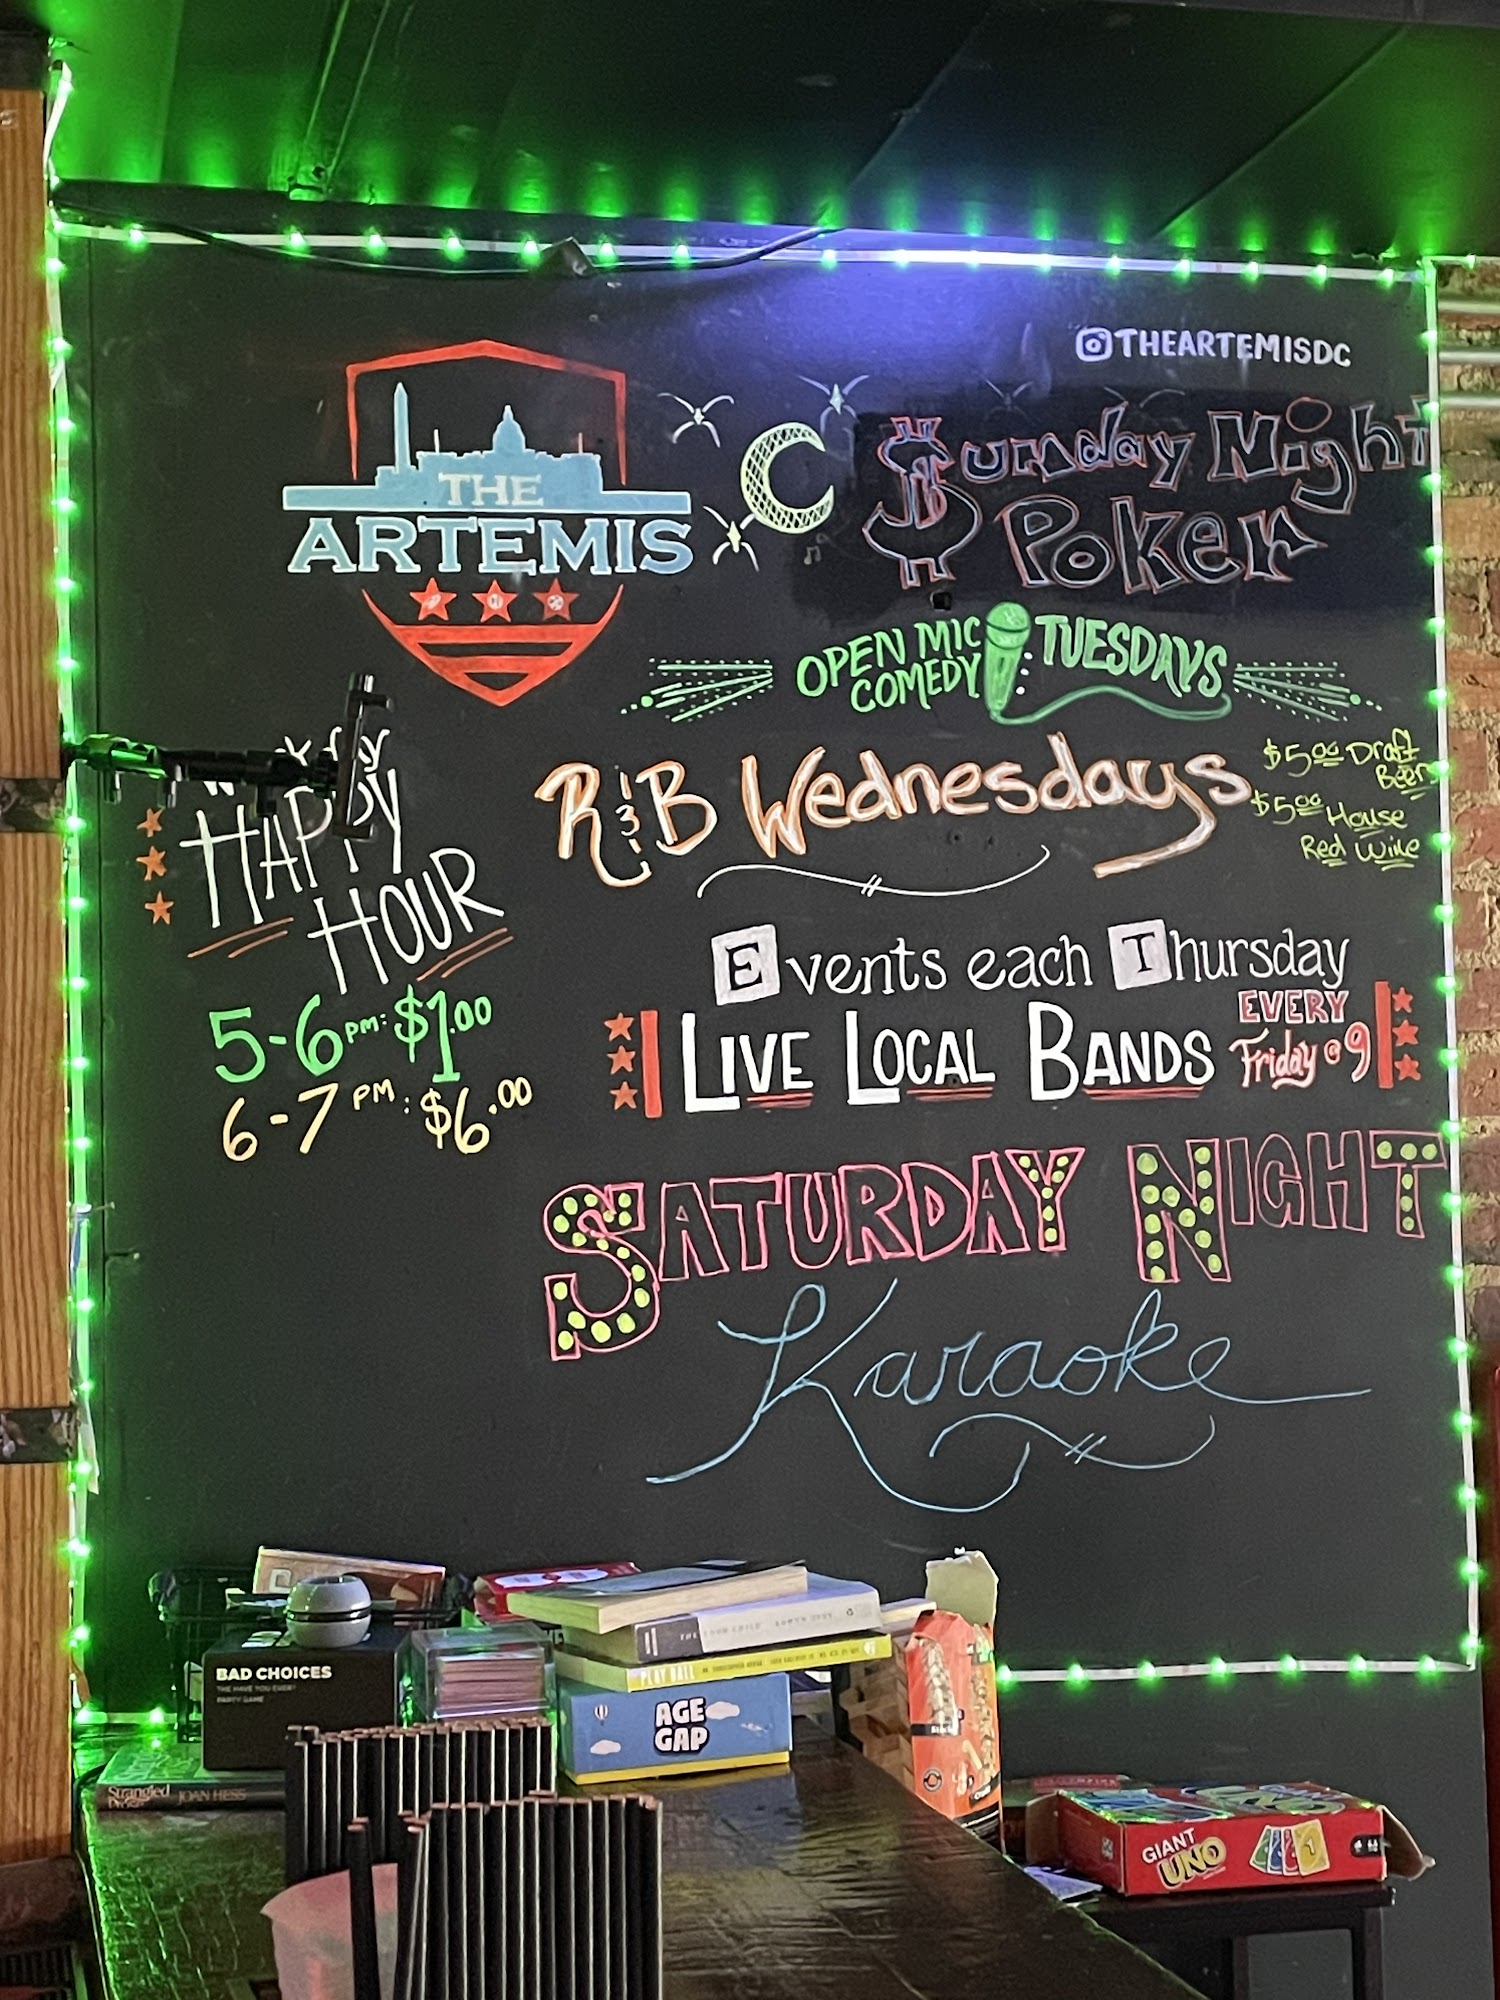 THEARTEMISDC
THE
ARTEMIS
$unday Night
Poker
OPEN MIC
COMEDY
TUESDAYS
R&B Wednesdays
$5.00 Draft
Beers
$5.00 House
Red Wine
HAPPY
HOUR
5-6 PM: $1.00
6-7 PM: $6.00
Events each Thursday
LIVE LOCAL BANDS
EVERY
Friday @ 9
SATURDAY NIGHT
Karaoke
BAD CHOICES
THE HAVE YOU EVER?
PARTY GAME
PLAY BALL
AGE
GAP
Strangled
JOAN HESS
GIANT
UNO